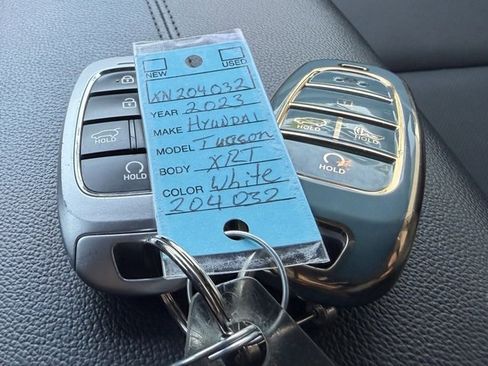 NEW USED
XN204032
YEAR 2023
MAKE HYUNDAI
MODEL Tucson
BODY XRT
COLOR White
204032
HOLD
HOLD
HOLD
HOLD